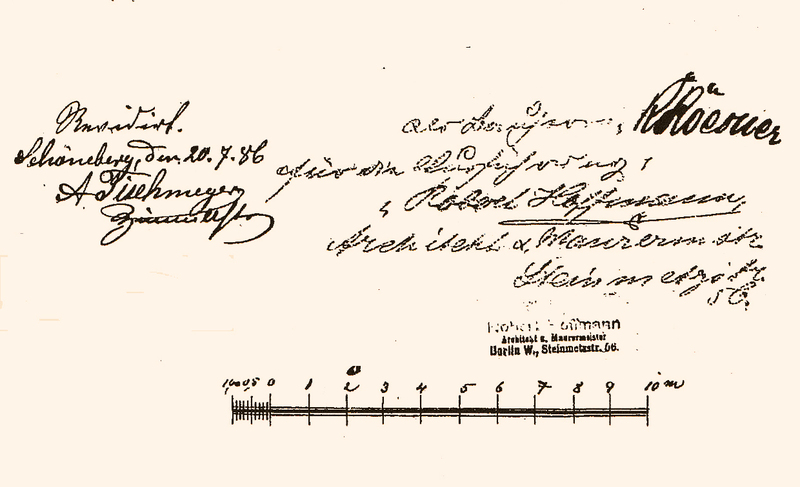 Revidirt.
Schöneberg, den 20. 7. 86
A Tischmeyer
Zimmermstr
als Bauherr: R Roesner
für die Ausführung:
Robert Hoffmann,
Architekt u. Maurermstr.
Steinmetzstr.
56.
Robert Hoffmann
Architekt u. Maurermeister
Berlin W., Steinmetzstr. 56.
1,0 0,5 0 1 2 3 4 5 6 7 8 9 10 m